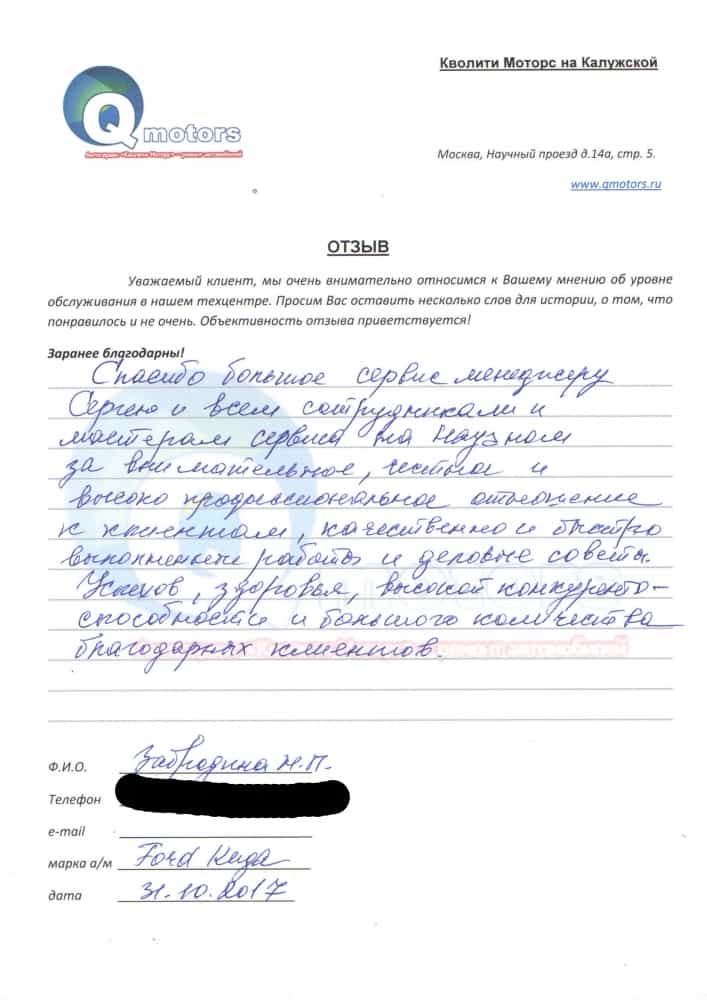 Кволити Моторс на Калужской
Q motors
Автосервис «Кволити Моторс» — ремонт автомобилей
Москва, Научный проезд д.14а, стр. 5.
www.qmotors.ru
ОТЗЫВ
Уважаемый клиент, мы очень внимательно относимся к Вашему мнению об уровне
обслуживания в нашем техцентре. Просим Вас оставить несколько слов для истории, о том, что
понравилось и не очень. Объективность отзыва приветствуется!
Заранее благодарны!
Спасибо большое сервис менеджеру
Сергею и всем сотрудникам и
мастерам сервиса на Научном
за внимательное, честное и
высоко профессиональное отношение
к клиентам, качественно и быстро
выполненные работы и деловые советы.
Успехов, здоровья, высокой конкуренто-
способности и большого количества
благодарных клиентов.
Ф.И.О. Забродина Н.П.
Телефон
e-mail
марка а/м Ford Kuga
дата 31.10.2017